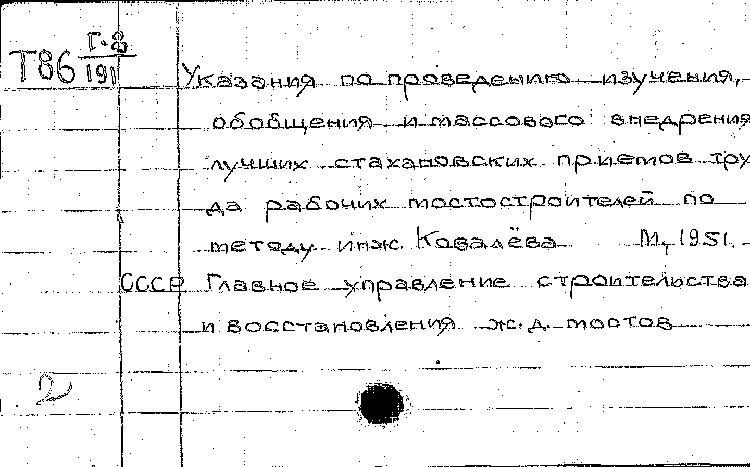 Г-2
Т86 191
Указания по проведению изучения,
обобщения и массового внедрения
лучших стахановских приемов тру
да рабочих мостостроителей по
методу инж. Ковалёва М, 1951.
СССР Главное управление строительства
и восстановления ж.д. мостов
2